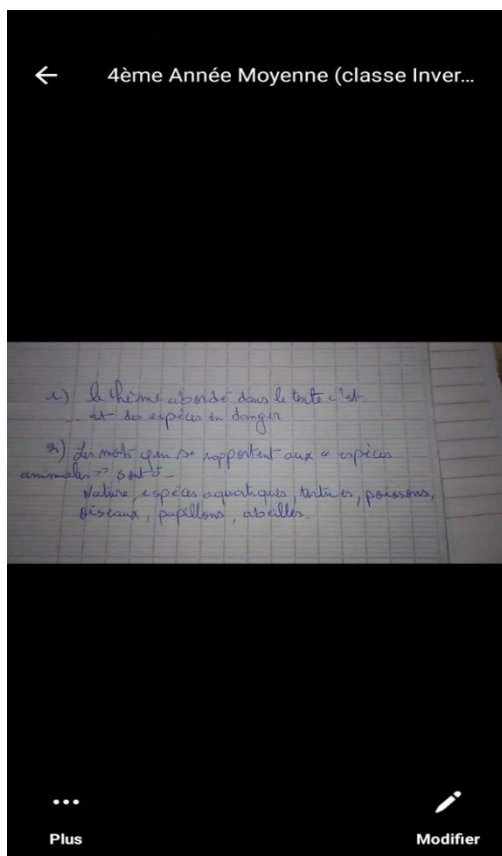 4ème Année Moyenne (classe Inver...
1) le thème abordé dans le texte c'est
.. est des espèces en danger
2) Les mots qui se rapportent aux « espèces
animales » sont :-
Nature, espèces aquatiques, tortues, poissons,
oiseaux, papillons, abeilles.
Plus
Modifier